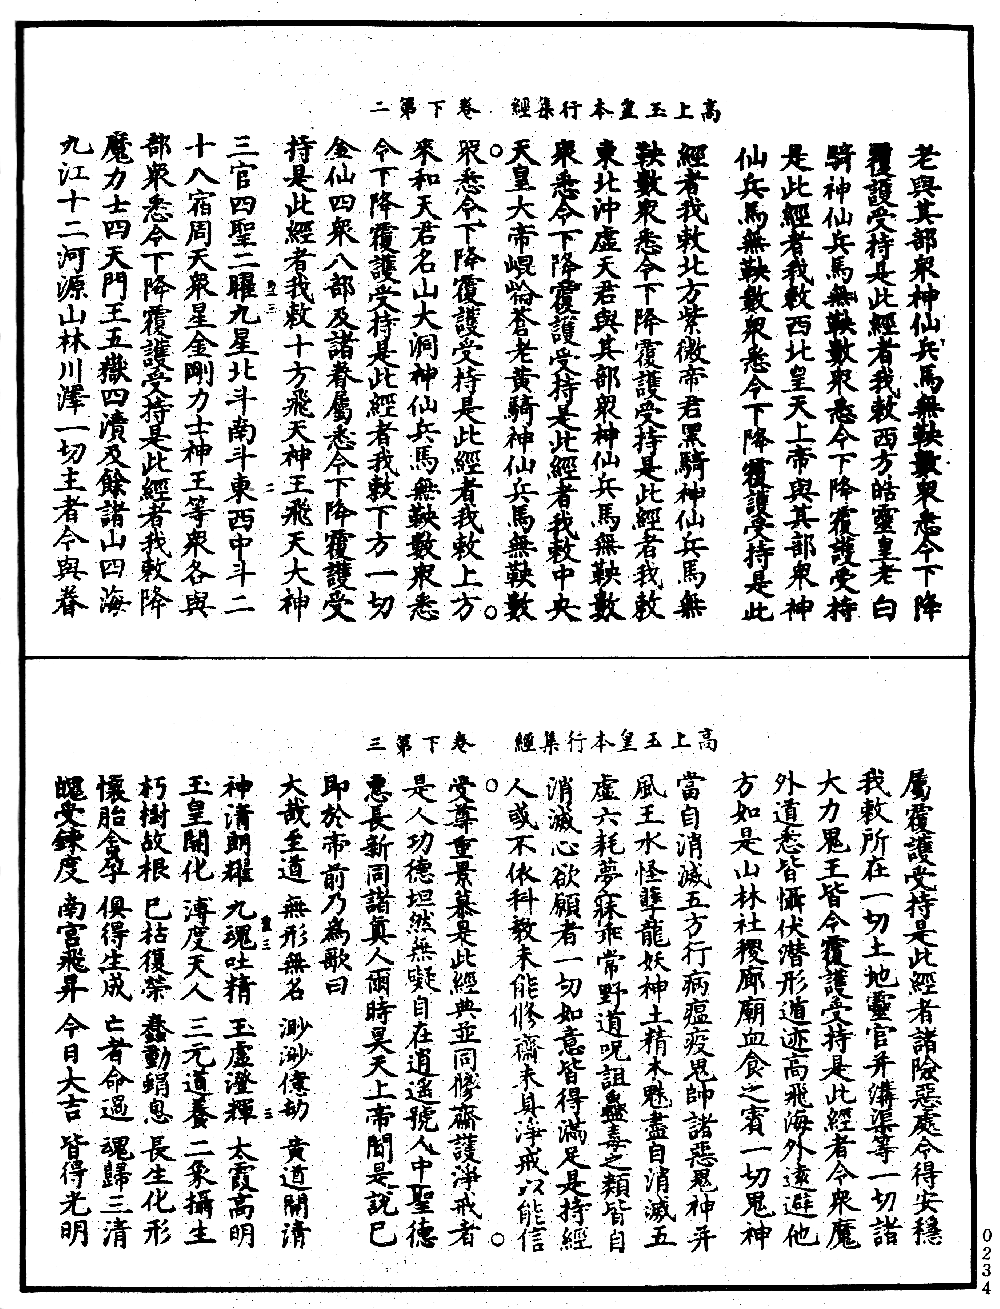 老與其部衆神仙兵馬無鞅數衆悉令下降
覆護受持是此經者我敕西方皓靈皇老白
騎神仙兵馬無鞅數衆悉令下降覆護受持
是此經者我敕西北皇天上帝與其部衆神
仙兵馬無鞅數衆悉令下降覆護受持是此
高上玉皇本行集經 卷下第二
經者我敕北方紫微帝君黑騎神仙兵馬無
鞅數衆悉令下降覆護受持是此經者我敕
東北沖虛天君與其部衆神仙兵馬無鞅數
衆悉令下降覆護受持是此經者我敕中央
天皇大帝崐崘蒼老黃騎神仙兵馬無鞅數
衆悉令下降覆護受持是此經者我敕上方
來和天君名山大洞神仙兵馬無鞅數衆悉
令下降覆護受持是此經者我敕下方一切
金仙四衆八部及諸眷屬悉令下降覆護受
持是此經者我敕十方飛天神王飛天大神
三官四聖二曜九星北斗南斗東西中斗二
十八宿周天衆星金剛力士神王等衆各與
部衆悉令下降覆護受持是此經者我敕降
魔力士四天門王五嶽四瀆及餘諸山四海
九江十二河源山林川澤一切主者令與眷
屬覆護受持是此經者諸險惡處令得安穩
我敕所在一切土地靈官并溝渠等一切諸
大力鬼王皆令覆護受持是此經者令衆魔
外道悉皆懾伏潛形遁迹高飛海外遠避他
方如是山林社稷廊廟血食之賓一切鬼神
高上玉皇本行集經 卷下第三
當自消滅五方行病瘟疫鬼帥諸惡鬼神并
風王水怪孽龍妖神土精木魅盡自消滅五
虛六耗夢寐乖常野道呪詛蠱毒之類皆自
消滅心欲願者一切如意皆得滿足是持經
人或不依科教未能修齋未具淨戒以能信
受尊重景慕是此經典並同修齋護淨戒者
是人功德坦然無礙自在逍遙號人中聖德
惠長新同諸真人爾時昊天上帝聞是說已
即於帝前乃爲歌曰
大哉至道 無形無名 渺渺億劫 黃道開清
神清朗耀 九魂吐精 玉虛澄輝 太霞高明
玉皇開化 溥度天人 三元道養 二象攝生
朽樹故根 已枯復榮 蠢動蜎息 長生化形
懷胎含孕 俱得生成 亡者命過 魂歸三清
魄受鍊度 南宮飛昇 今日大吉 皆得光明
0234